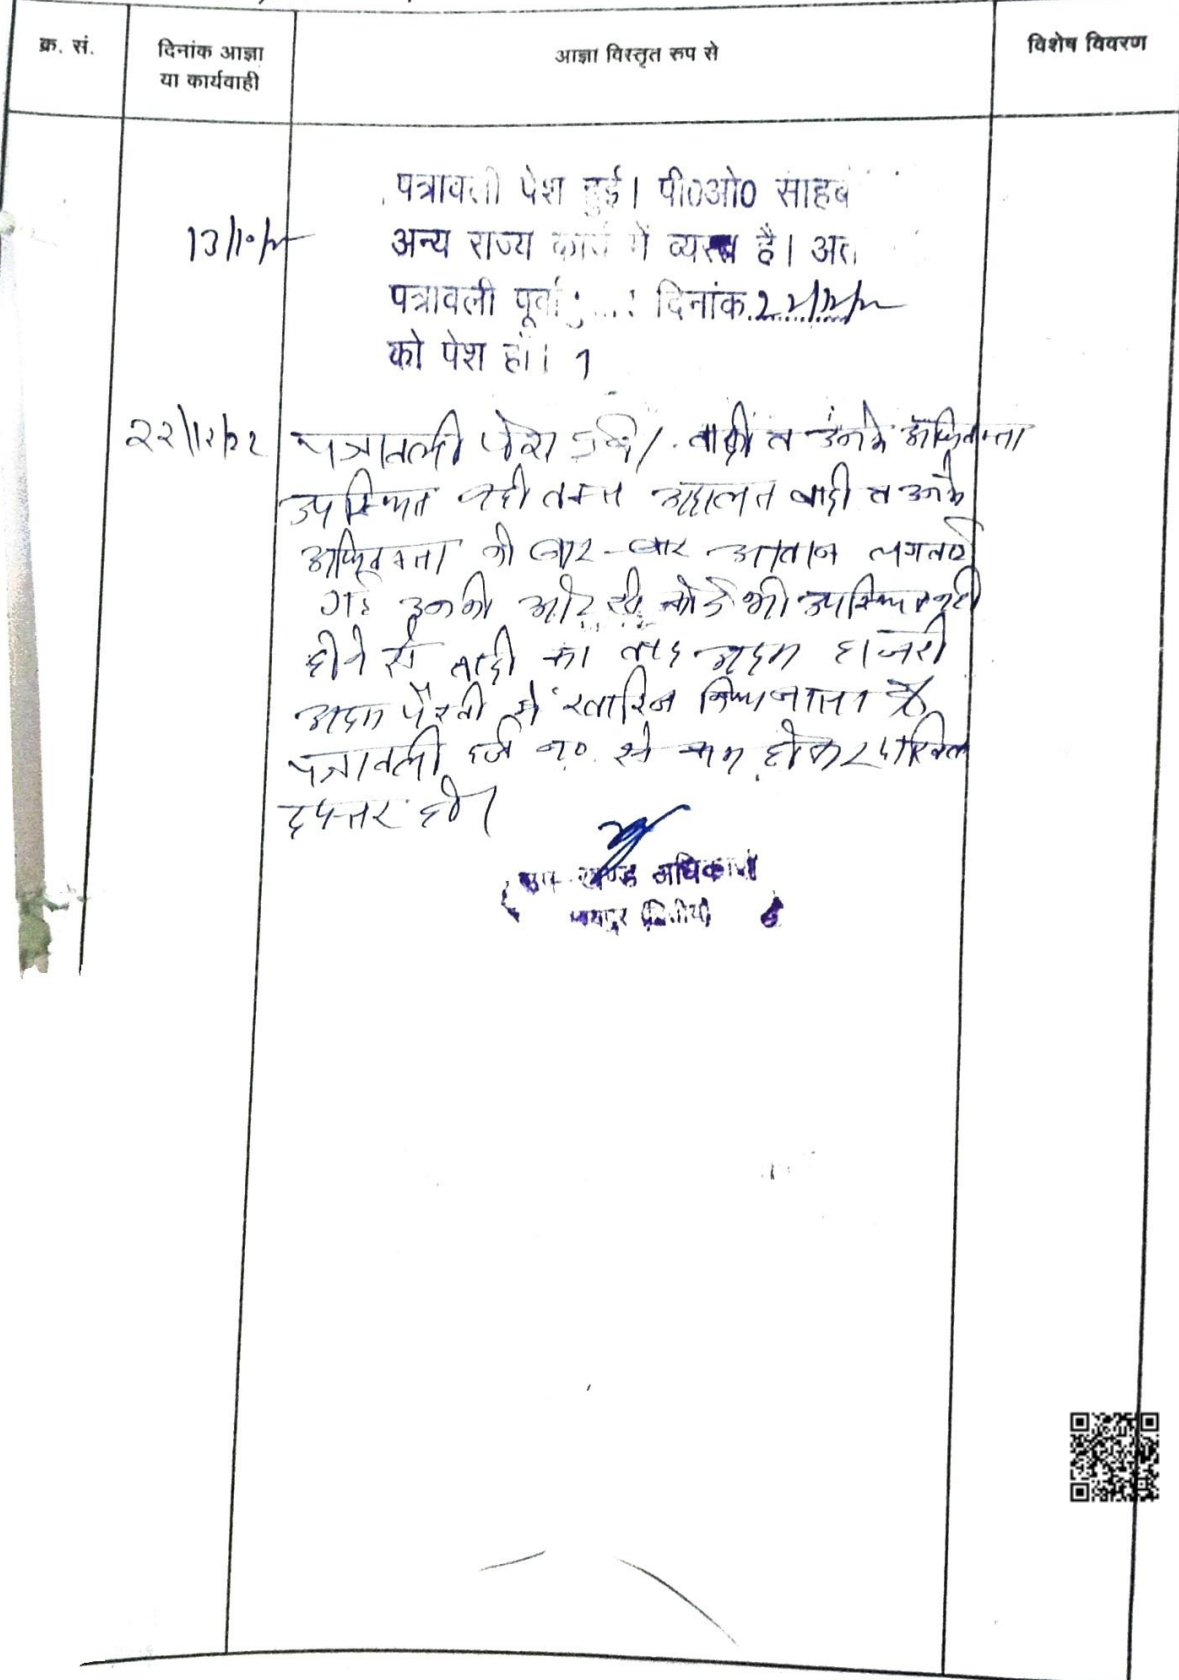 क्र. सं.
दिनांक आज्ञा
या कार्यवाही
आज्ञा विस्तृत रुप से
विशेष विवरण
पत्रावली पेश हुई। पी0ओ0 साहब
13/10/22
अन्य राज्य कार्य में व्यस्त है। अतः
पत्रावली पूर्वानुसार दिनांक 22/12/22
को पेश हो।
22/12/22
पत्रावली पेश हुई। वादी व उनके अधिवक्ता
उपस्थित नही वक्त अदालत वादी व उनके
अधिवक्ता को बार-बार आवाज लगवाई
गई उनकी ओर से कोई भी उपस्थित नही
होने से वादी का वाद अदम हाजरी
अदम पैरवी में खारिज किया जाता है
पत्रावली दर्ज न0 से कम होकर दाखिल
दफ्तर हो।
उप खण्ड अधिकारी
जयपुर (द्वितीय)